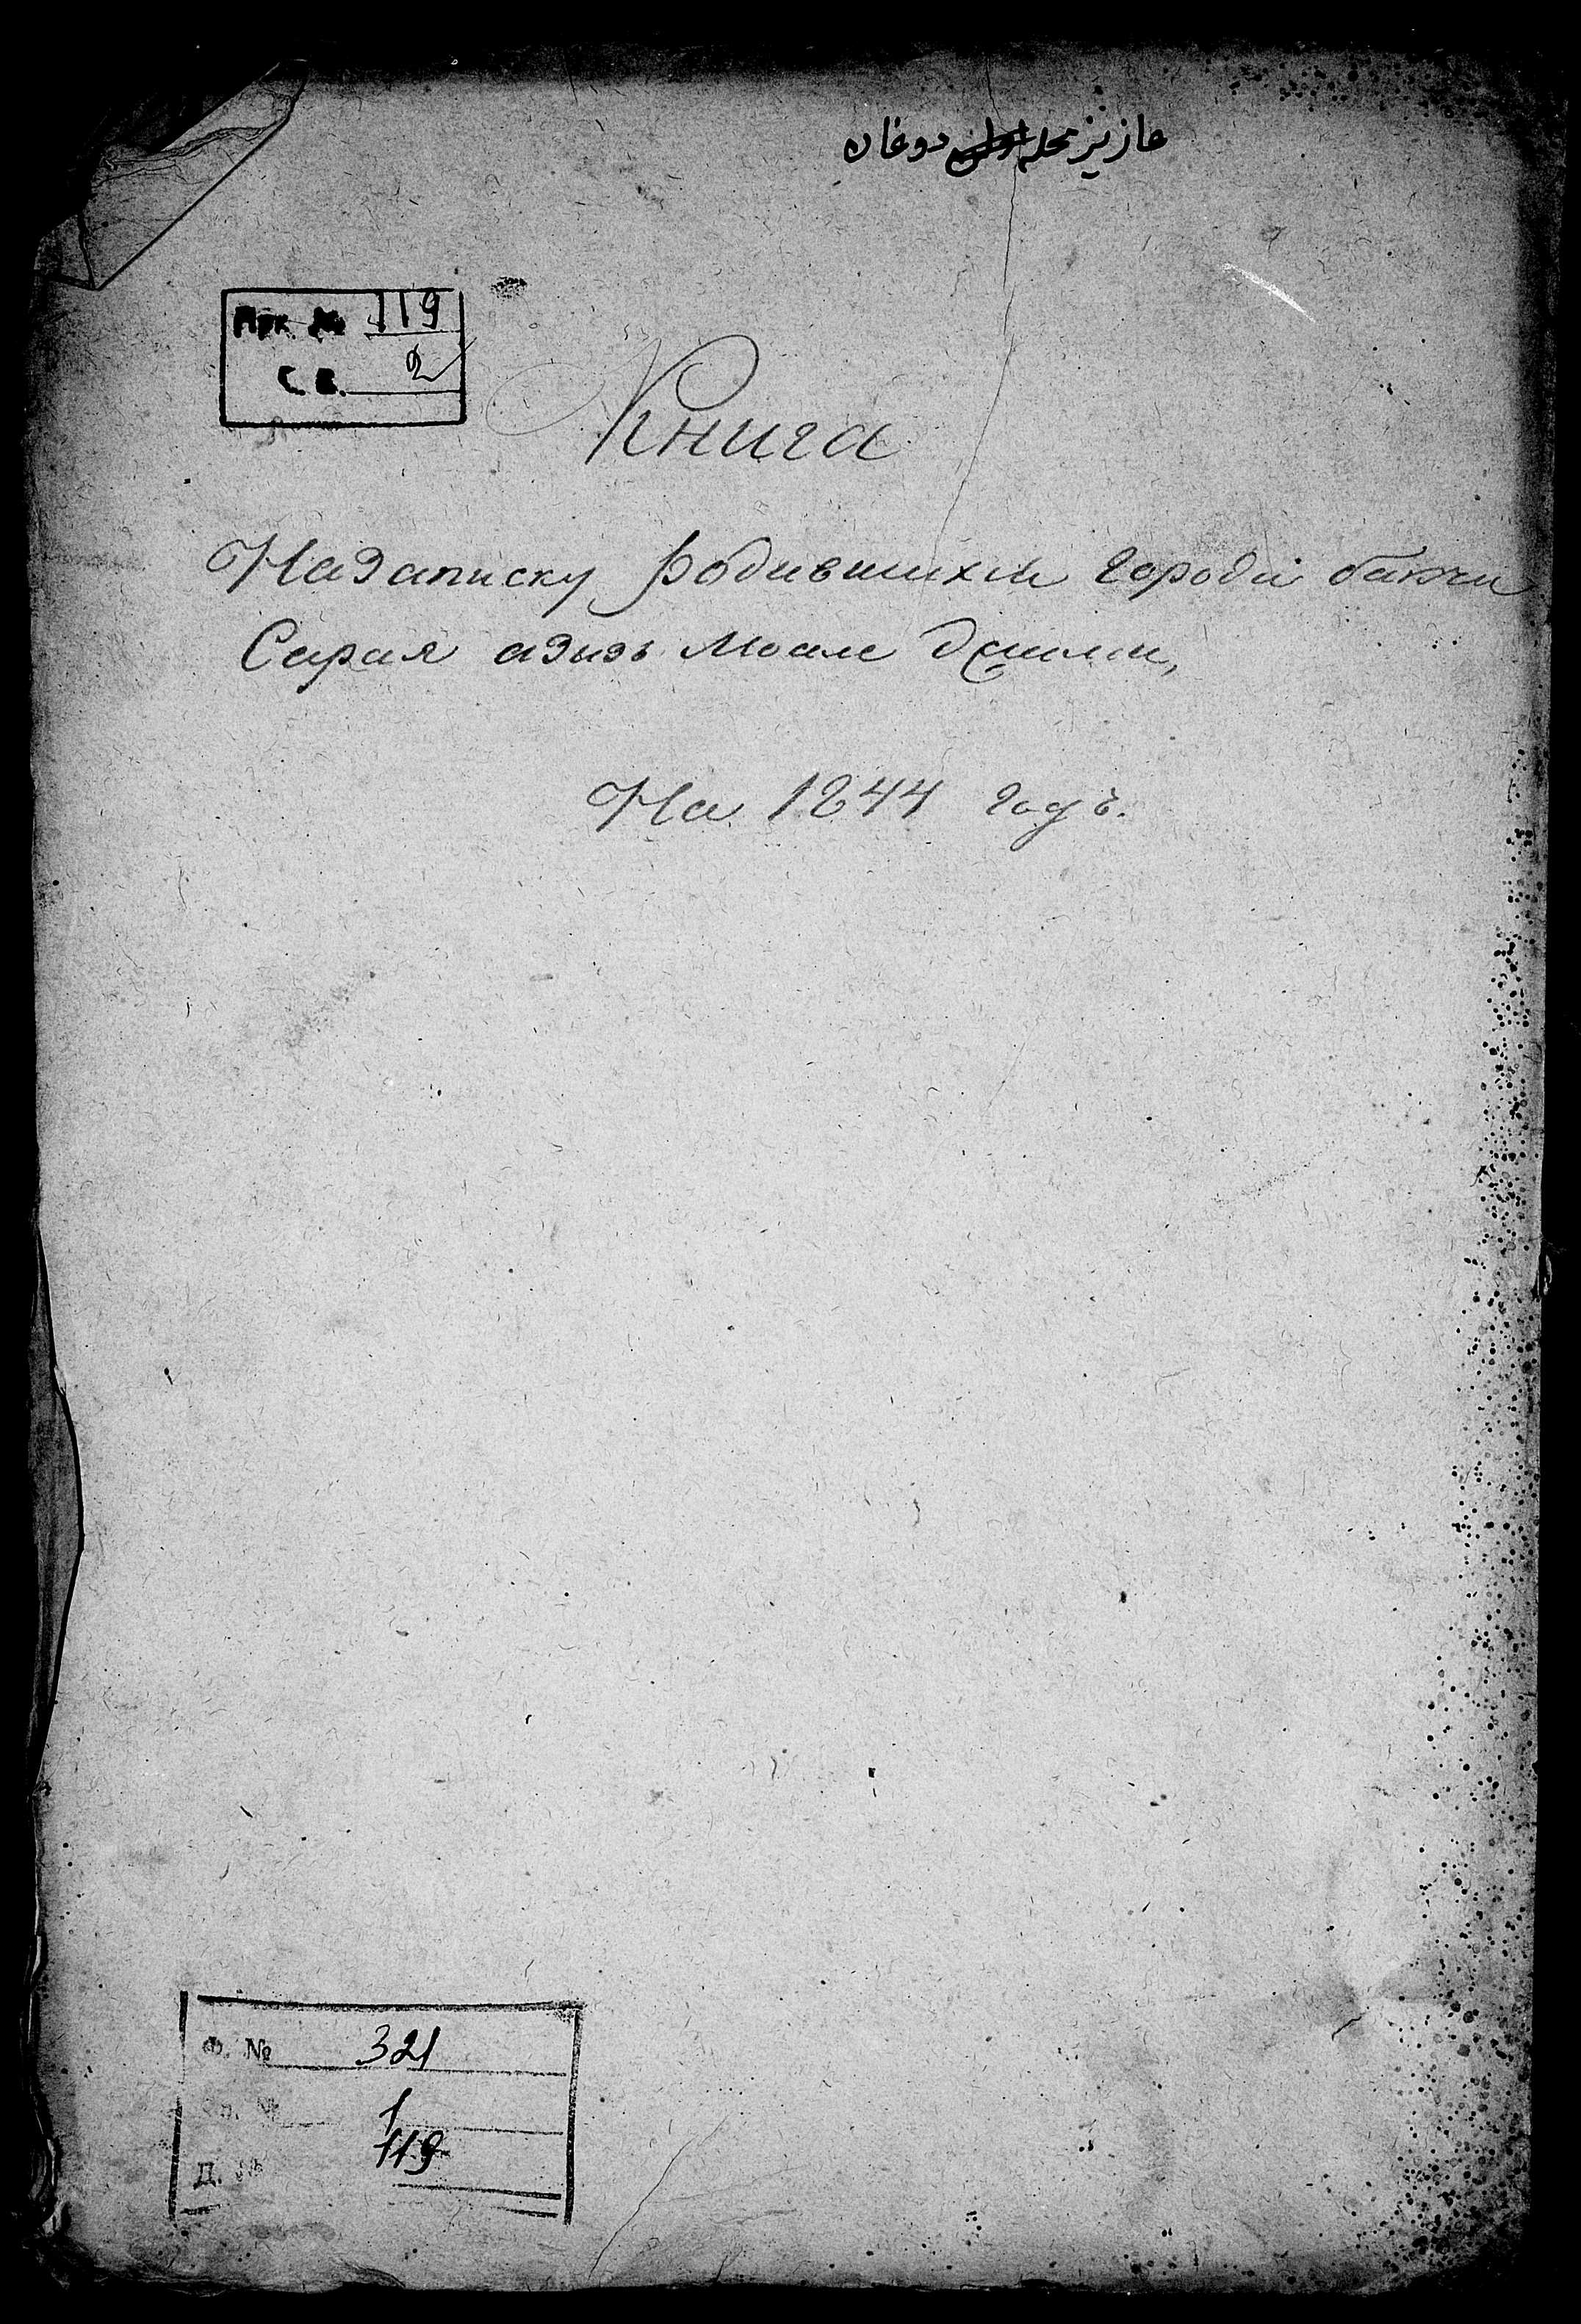 عازيز محله دوغان
Арх № 119
С. в. 2
Книга
На Записку родившихся города бакчи
Сарая азизъ Моале
На 1844 годъ.
Ф. № 321
Оп. № 1
Д. № 119